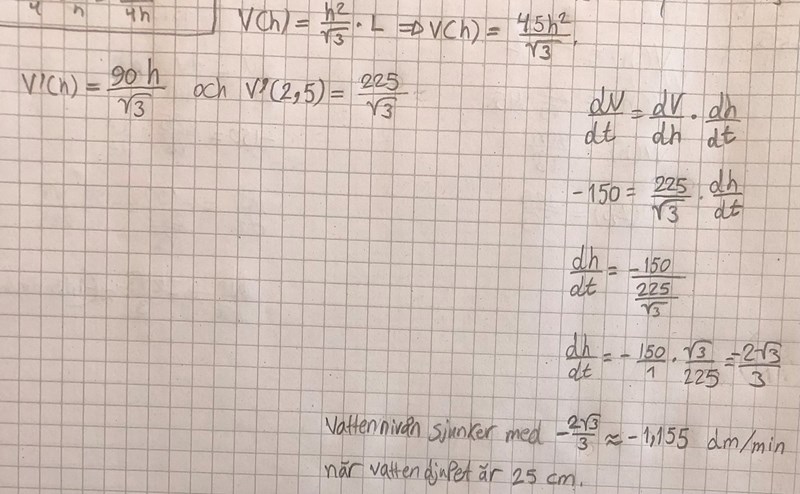 4 n 4h
V(h) = h²/√3 · L ⇒ V(h) = 45h²/√3.
V'(h) = 90h/√3 och V'(2,5) = 225/√3
dV/dt = dV/dh · dh/dt
-150 = 225/√3 · dh/dt
dh/dt = -150/(225/√3)
dh/dt = -150/1 · √3/225 = -2√3/3
Vattennivån sjunker med -2√3/3 ≈ -1,155 dm/min
när vattendjupet är 25 cm.